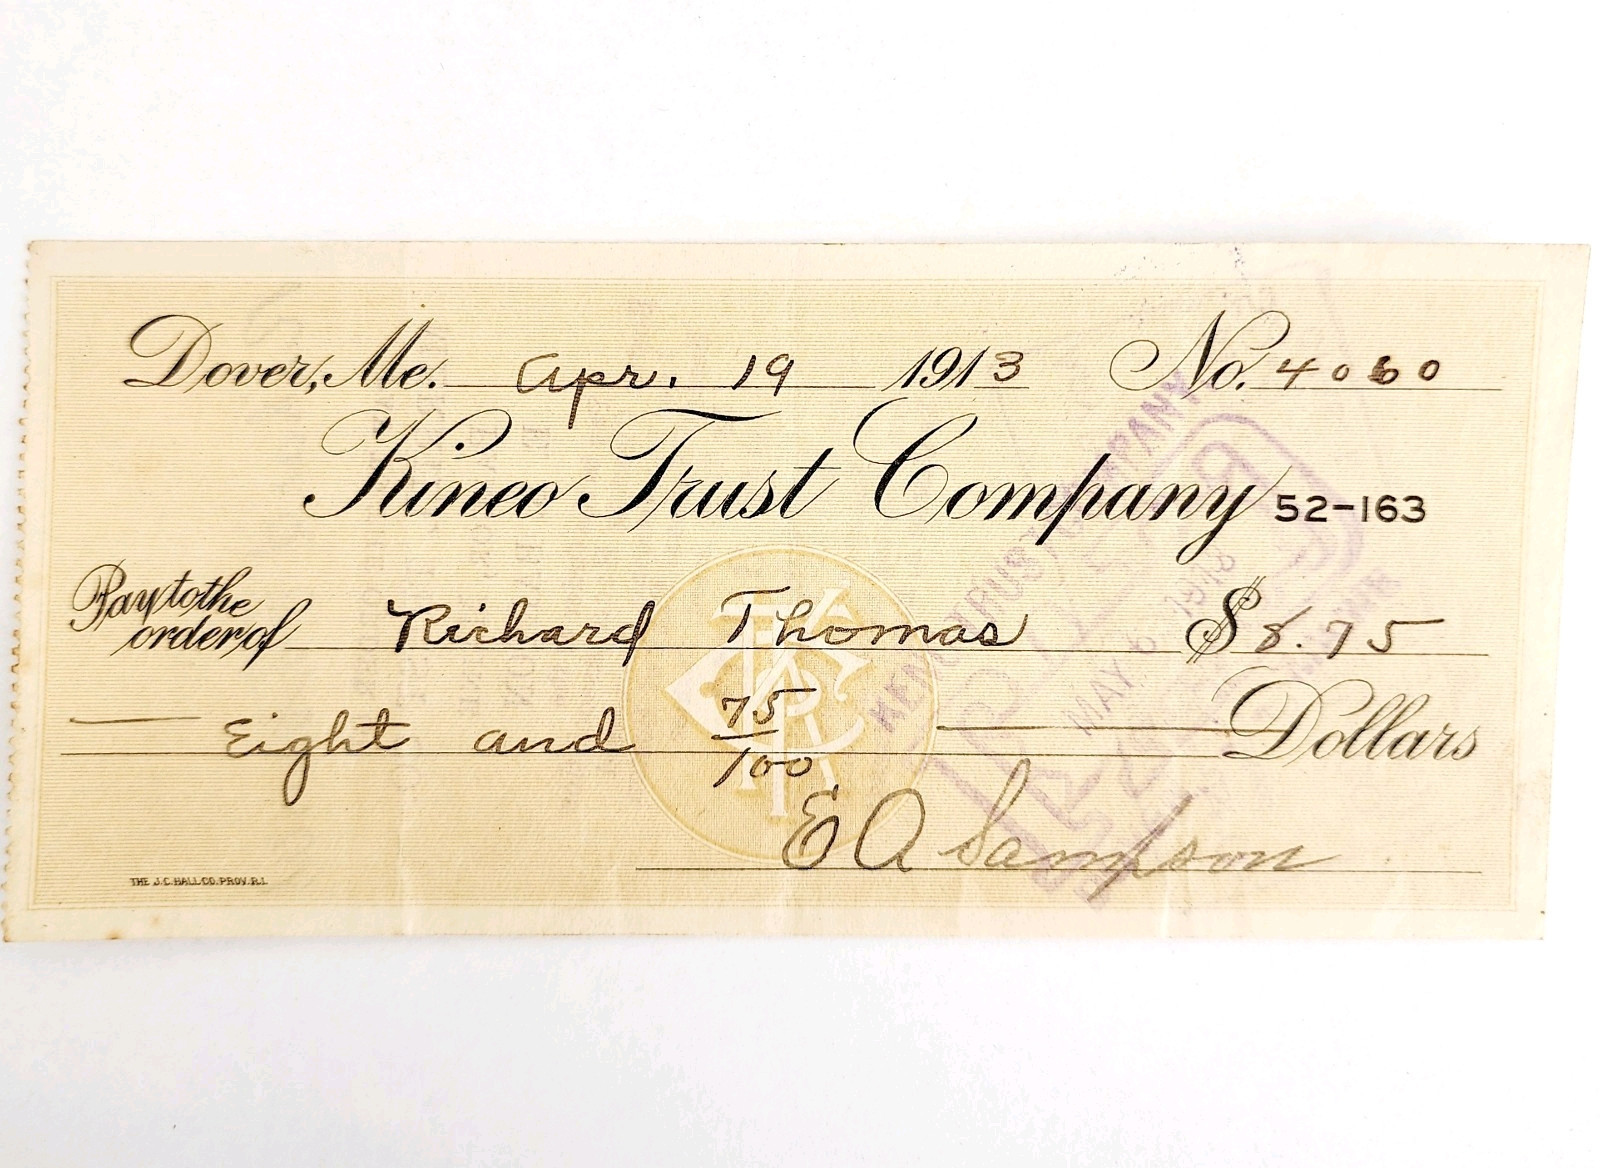 Dover, Me. Apr. 19 1913 No. 4060
Kineo Trust Company 52-163
Pay to the
order of Richard Thomas $8.75
Eight and 75/100 Dollars
E A Sampson
THE J.C. HALL CO. PROV. R.I.
TRUST COMPANY
MAY 6 1913